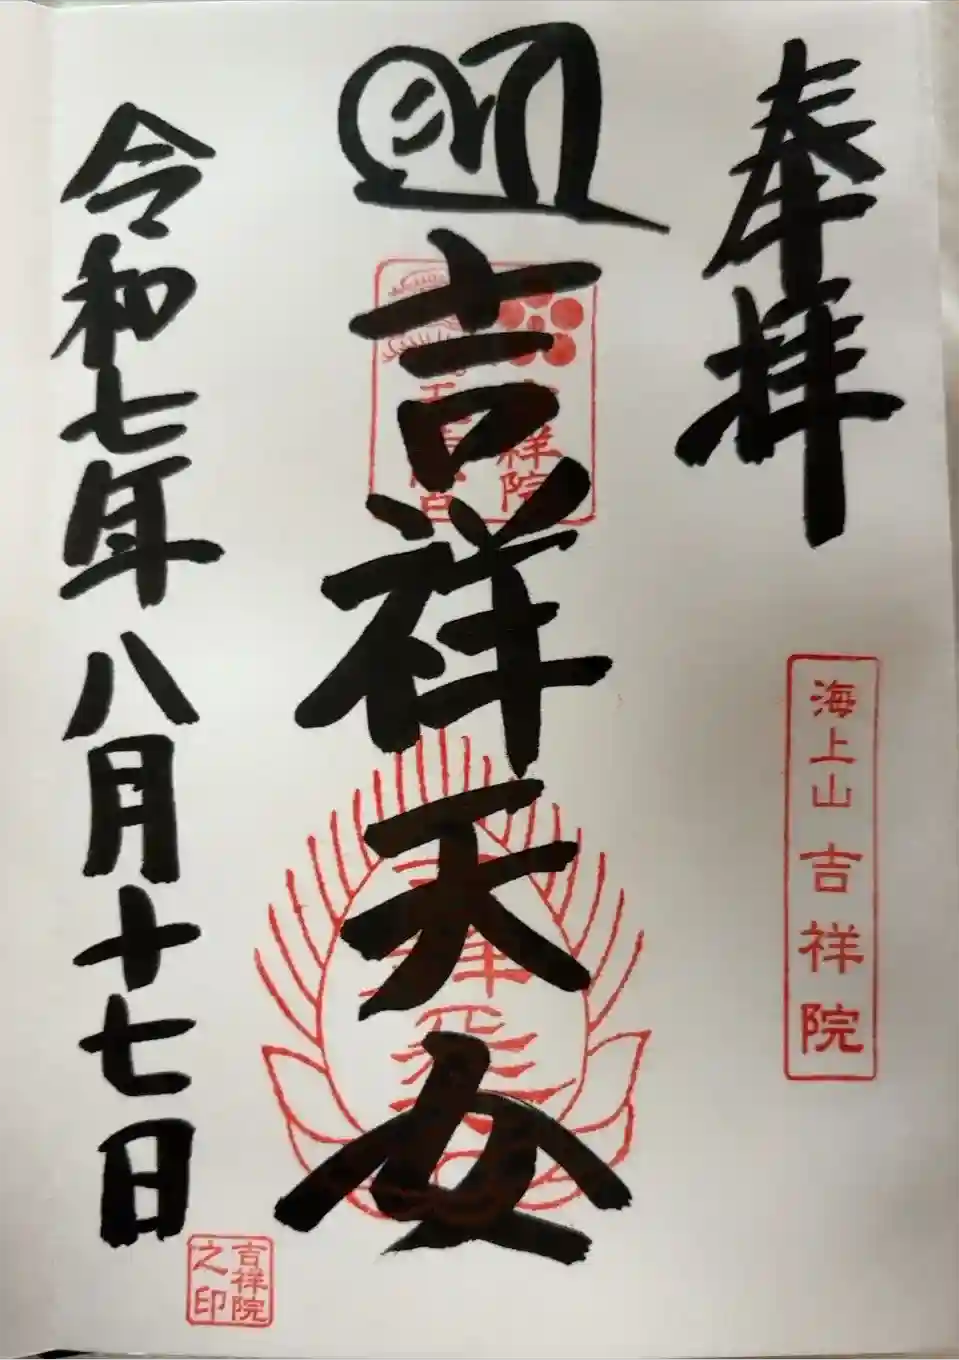 奉拝
海上山 吉祥院
吉祥天女
令和七年八月十七日
吉祥院
之印